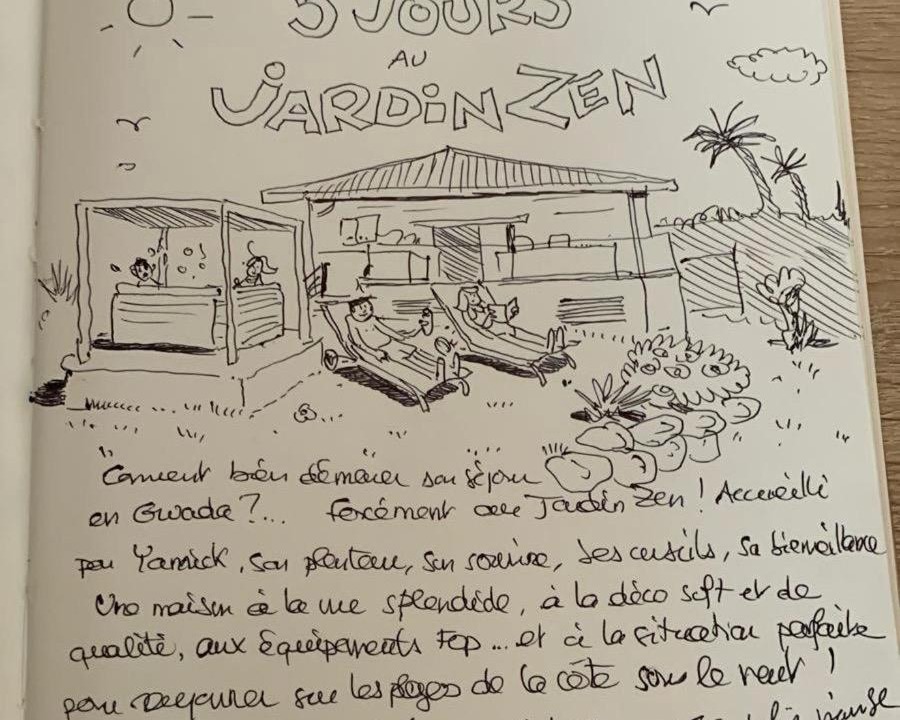 5 JOURS
AU
JARDIN ZEN
"Comment bien démarrer son séjour
en Gwada ?... forcément au Jardin Zen ! Accueilli
par Yannick, son planteur, son sourire, ses conseils, sa bienveillance
Une maison à la vue splendide, à la déco soft et de
qualité, aux équipements top... et à la situation parfaite
pour sur les plages de la côte sous le vent !